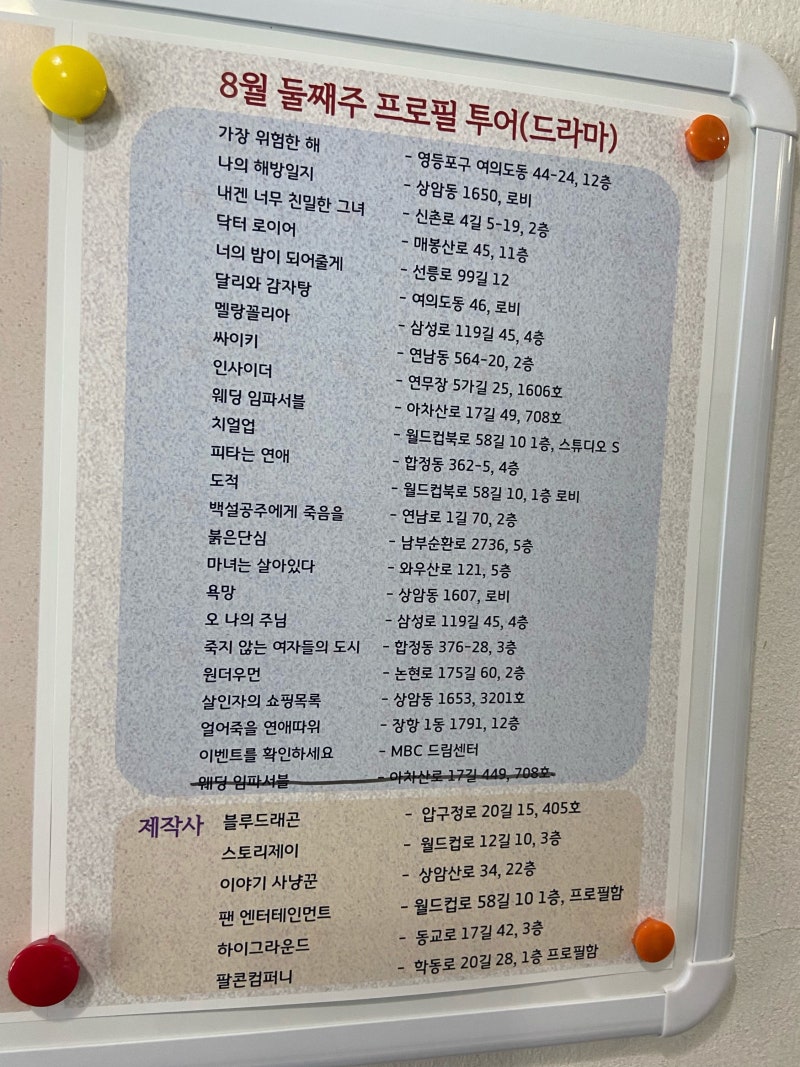 8월 둘째주 프로필 투어(드라마)
가장 위험한 해 - 영등포구 여의도동 44-24, 12층
나의 해방일지 - 상암동 1650, 로비
내겐 너무 친밀한 그녀 - 신촌로 4길 5-19, 2층
닥터 로이어 - 매봉산로 45, 11층
너의 밤이 되어줄게 - 선릉로 99길 12
달리와 감자탕 - 여의도동 46, 로비
멜랑꼴리아 - 삼성로 119길 45, 4층
싸이키 - 연남동 564-20, 2층
인사이더 - 연무장 5가길 25, 1606호
웨딩 임파서블 - 아차산로 17길 49, 708호
치얼업 - 월드컵북로 58길 10 1층, 스튜디오 S
피타는 연애 - 합정동 362-5, 4층
도적 - 월드컵북로 58길 10, 1층 로비
백설공주에게 죽음을 - 연남로 1길 70, 2층
붉은단심 - 남부순환로 2736, 5층
마녀는 살아있다 - 와우산로 121, 5층
욕망 - 상암동 1607, 로비
오 나의 주님 - 삼성로 119길 45, 4층
죽지 않는 여자들의 도시 - 합정동 376-28, 3층
원더우먼 - 논현로 175길 60, 2층
살인자의 쇼핑목록 - 상암동 1653, 3201호
얼어죽을 연애따위 - 장항 1동 1791, 12층
이벤트를 확인하세요 - MBC 드림센터
웨딩 임파서블 - 아차산로 17길 449, 708호
제작사 블루드래곤 - 압구정로 20길 15, 405호
스토리제이 - 월드컵로 12길 10, 3층
이야기 사냥꾼 - 상암산로 34, 22층
팬 엔터테인먼트 - 월드컵로 58길 10 1층, 프로필함
하이그라운드 - 동교로 17길 42, 3층
팔콘컴퍼니 - 학동로 20길 28, 1층 프로필함